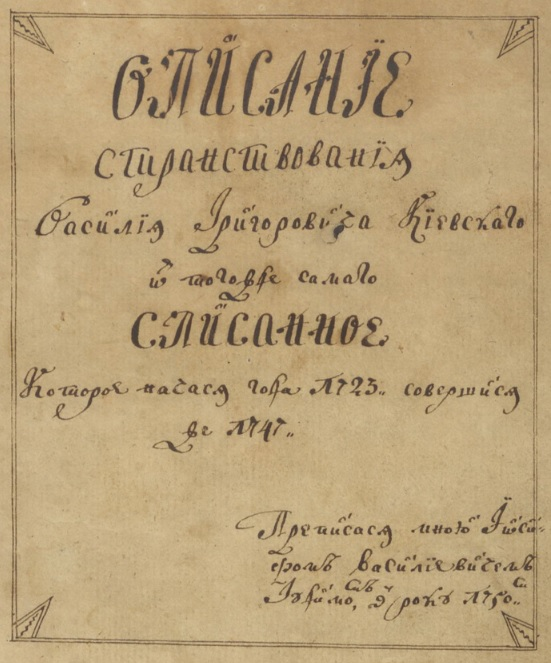 ОПИСАНІЕ
странствованія
Василія Григоровича Кіевскаго
ѿ тогожде самаго
СПИСАННОЕ
Которое начася года 1723 совершися
же 1747
Преписася мною Іѡси-
фомъ Василіевичемъ
року 1750